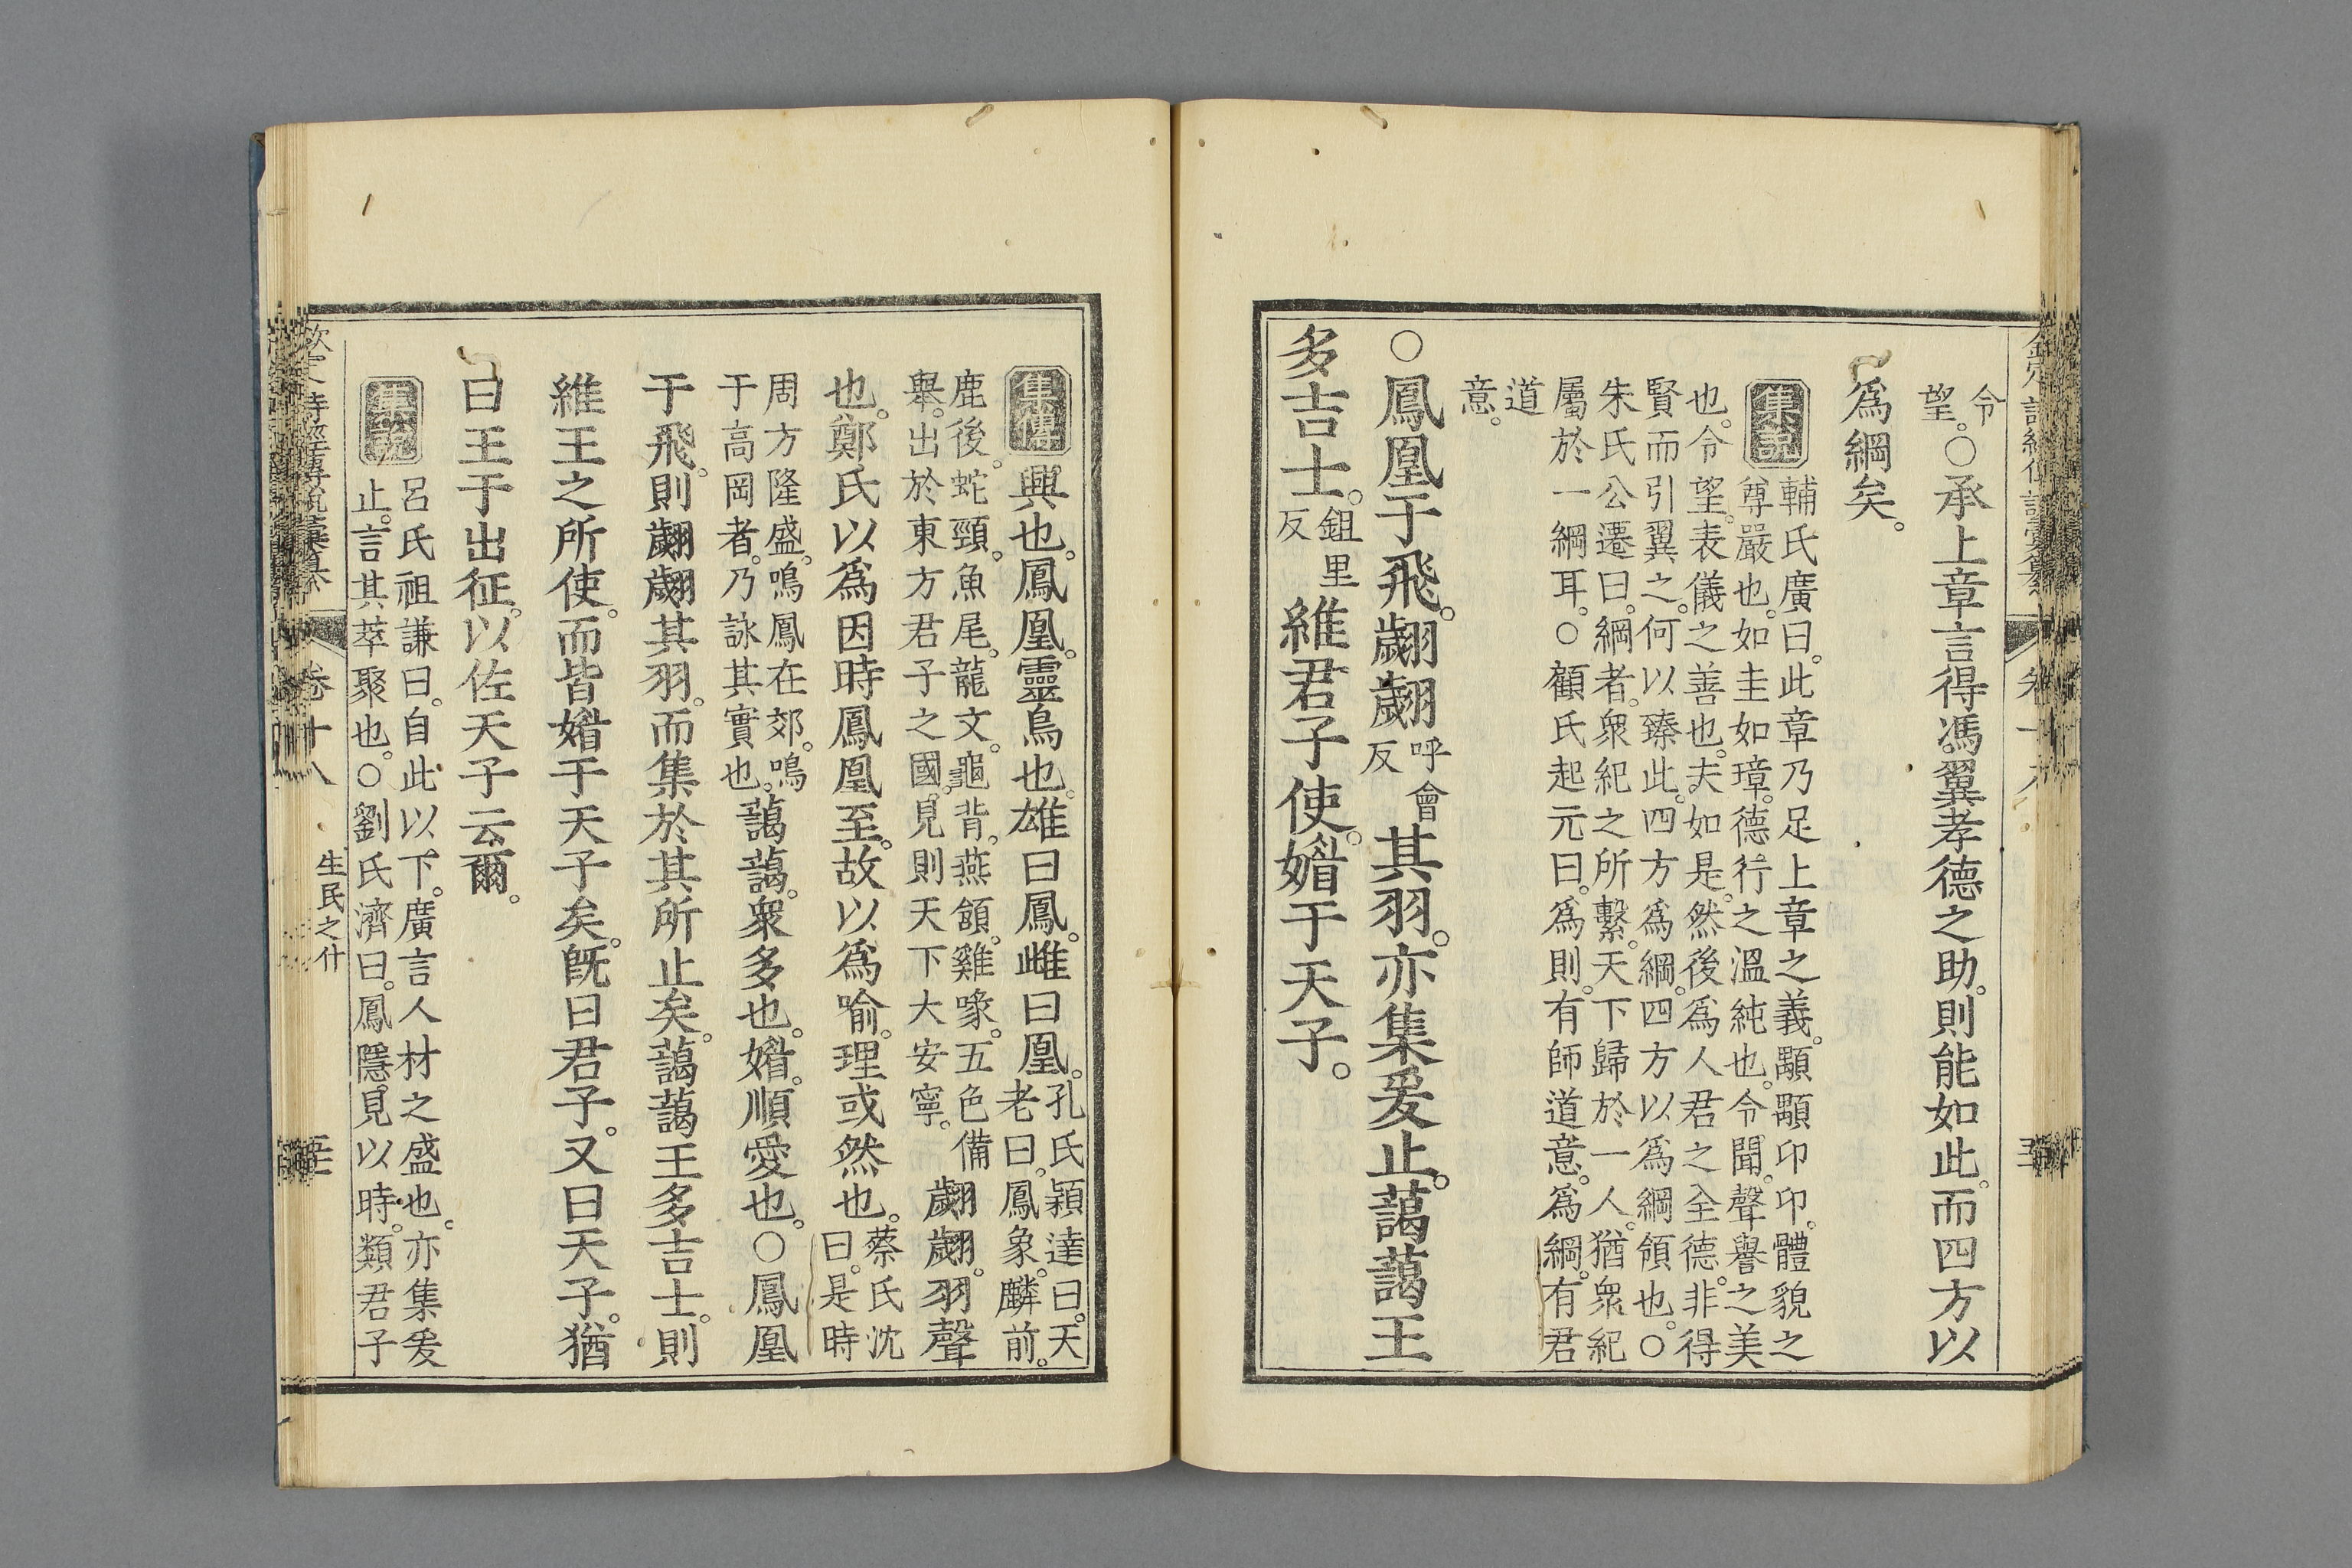 令
望。○承上章言得馮翼孝德之助。則能如此。而四方以
爲綱矣。
集說
輔氏廣曰。此章乃足上章之義。顒顒卬卬。體貌之
尊嚴也。如圭如璋。德行之溫純也。令聞。聲譽之美
也。令望。表儀之善也。夫如是。然後爲人君之全德。非得
賢而引翼之。何以臻此。四方爲綱。四方以爲綱領也。○
朱氏公遷曰。綱者。衆紀之所繫。天下歸於一人。猶衆紀
屬於一綱耳。○顧氏起元曰。爲則。有師道意。爲綱。有君
道
意。
○鳳凰于飛。翽翽呼會反其羽。亦集爰止。藹藹王
多吉士。鉏里反維君子使。媚于天子。
集傳
興也。鳳凰。靈鳥也。雄曰鳳。雌曰凰。
孔氏穎達曰。天
老曰。鳳象。麟前。
鹿後。蛇頸。魚尾。龍文。龜背。燕頷。雞喙。五色備
舉。出於東方君子之國。見則天下大安寧。
翽翽。羽聲
也。鄭氏以爲因時鳳凰至。故以爲喻。理或然也。
蔡氏沈
曰。是時
周方隆盛。鳴鳳在郊。鳴
于高岡者。乃詠其實也。
藹藹。衆多也。媚。順愛也。○鳳凰
于飛。則翽翽其羽。而集於其所止矣。藹藹王多吉士。則
維王之所使。而皆媚于天子矣。旣曰君子。又曰天子。猶
曰王于出征。以佐天子云爾。
集說
呂氏祖謙曰。自此以下。廣言人材之盛也。亦集爰
止。言其萃聚也。○劉氏濟曰。鳳隱見以時。類君子
卷十八
生民之什